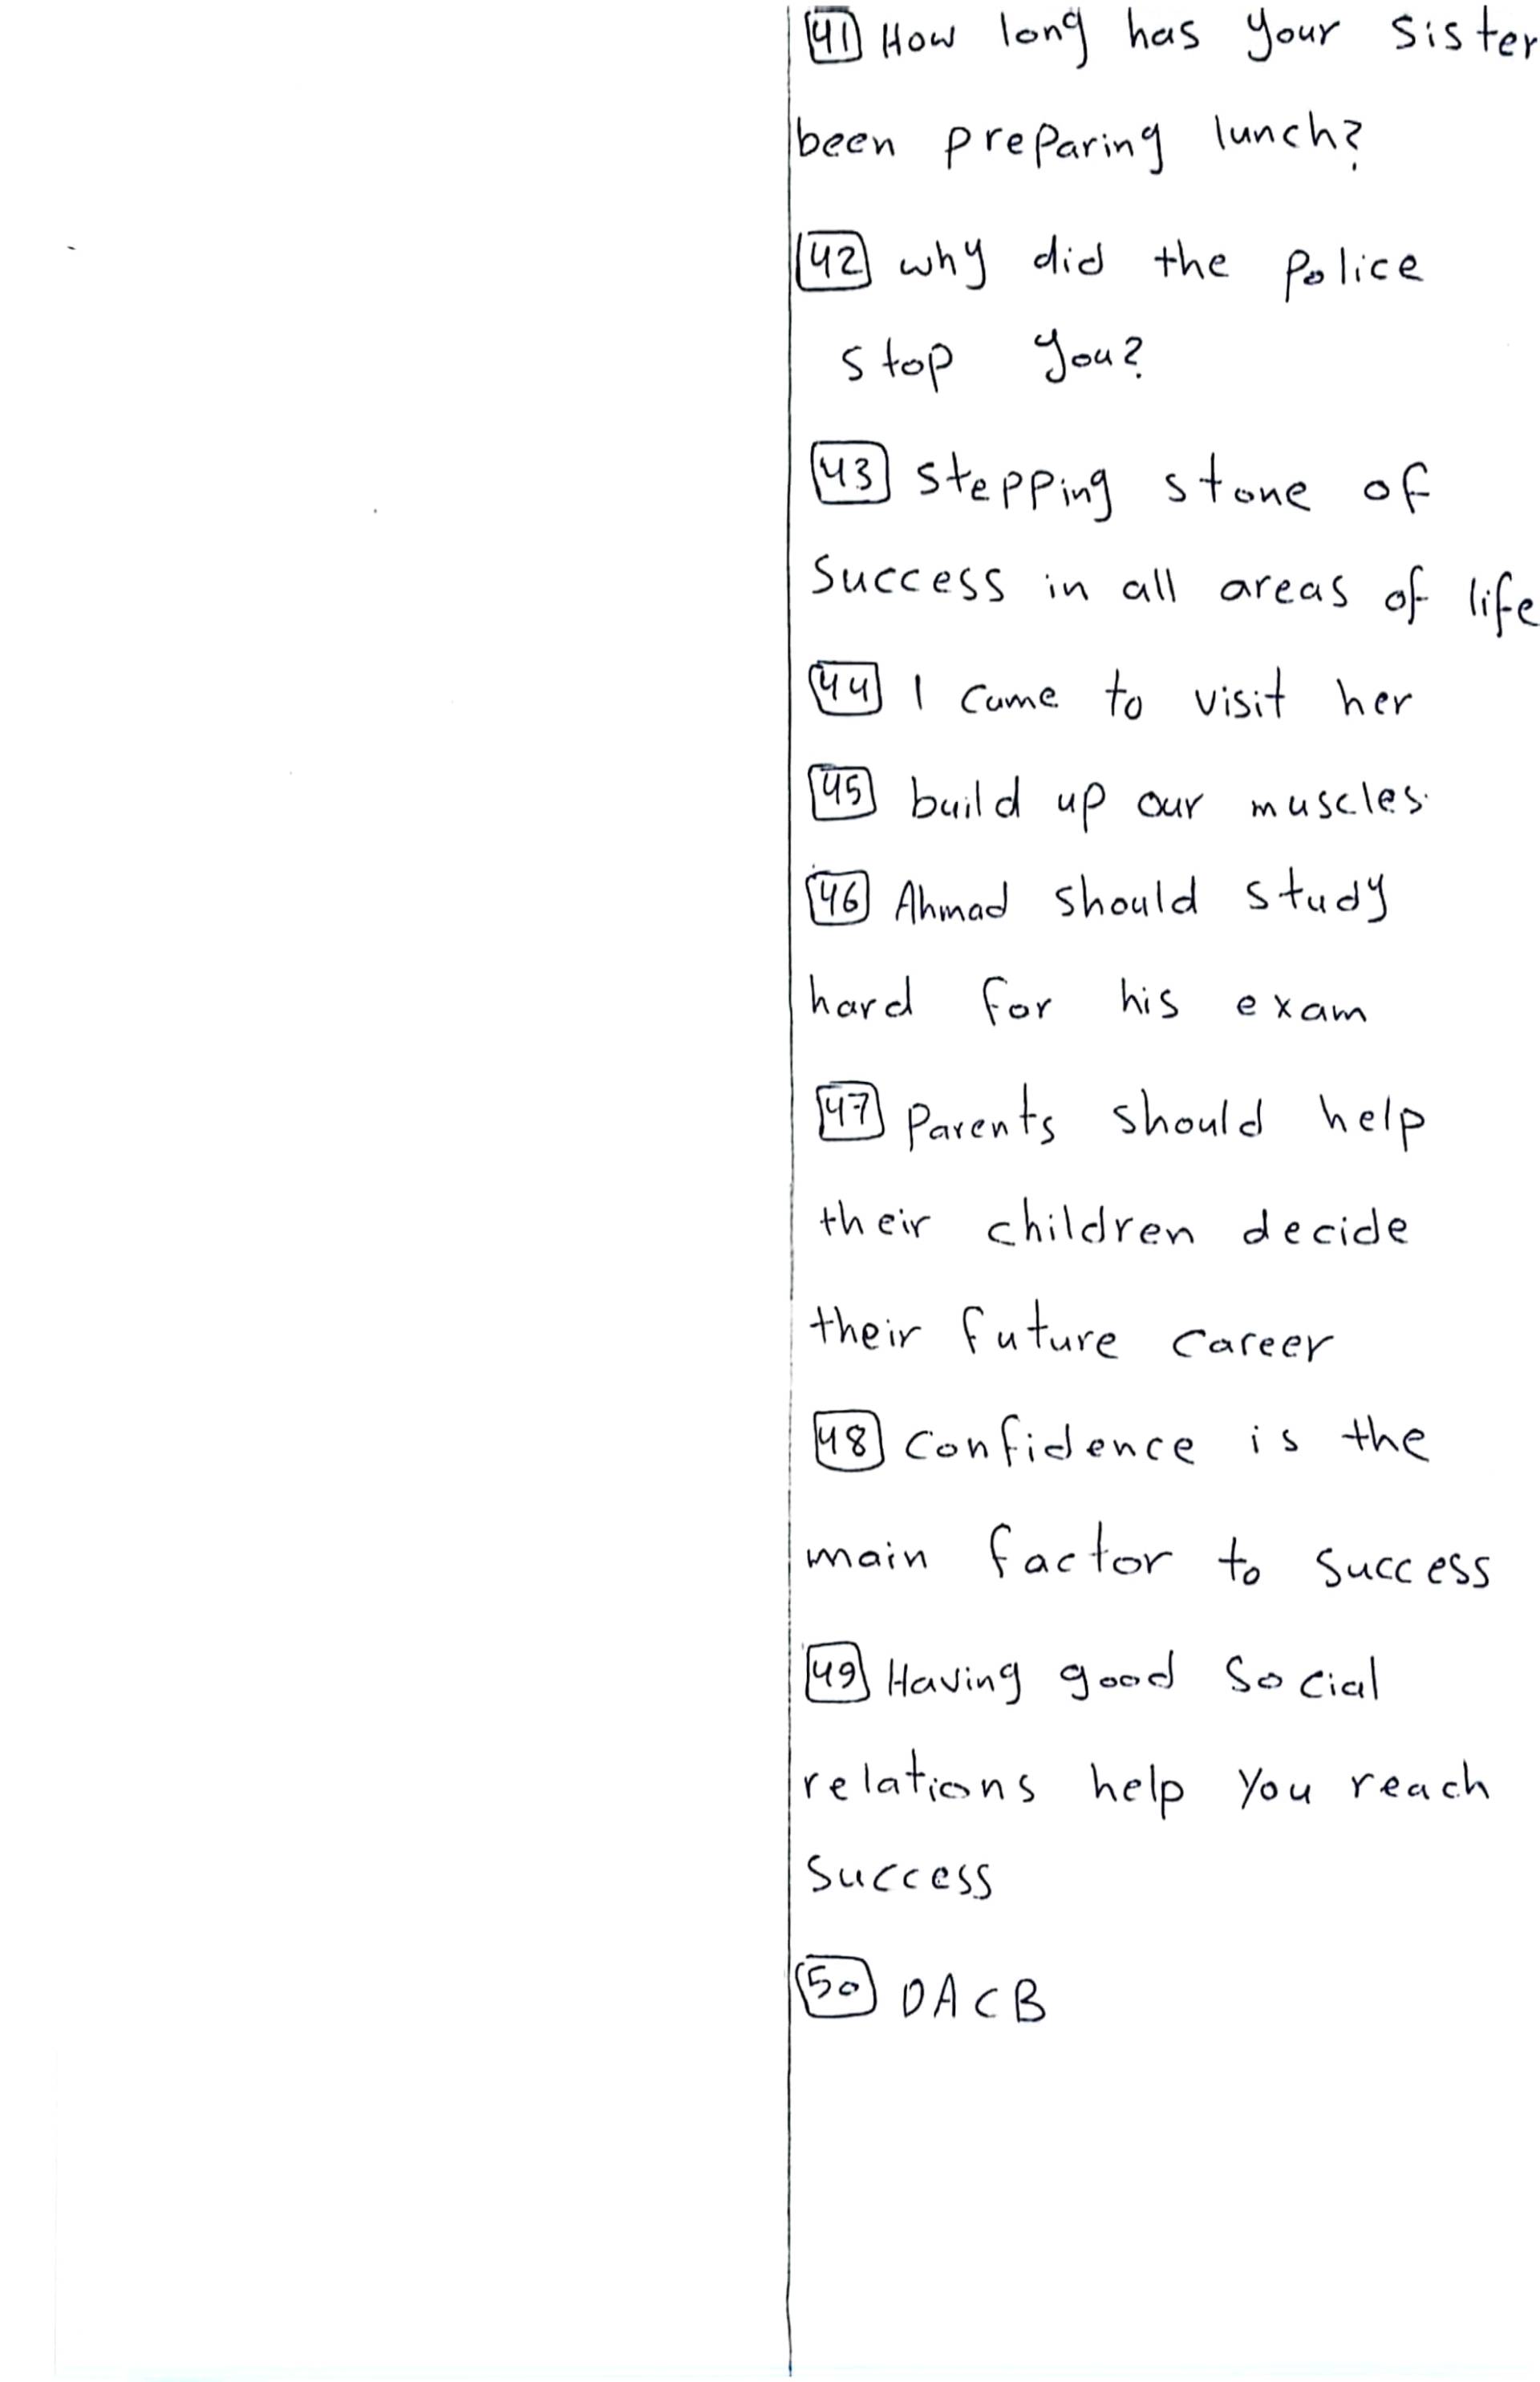 41 How long has your sister
been preparing lunch?
42 why did the police
stop you?
43 stepping stone of
success in all areas of life
44 I came to visit her
45 build up our muscles.
46 Ahmad should study
hard for his exam
47 Parents should help
their children decide
their future career
48 confidence is the
main factor to success
49 Having good social
relations help you reach
success
50 DACB